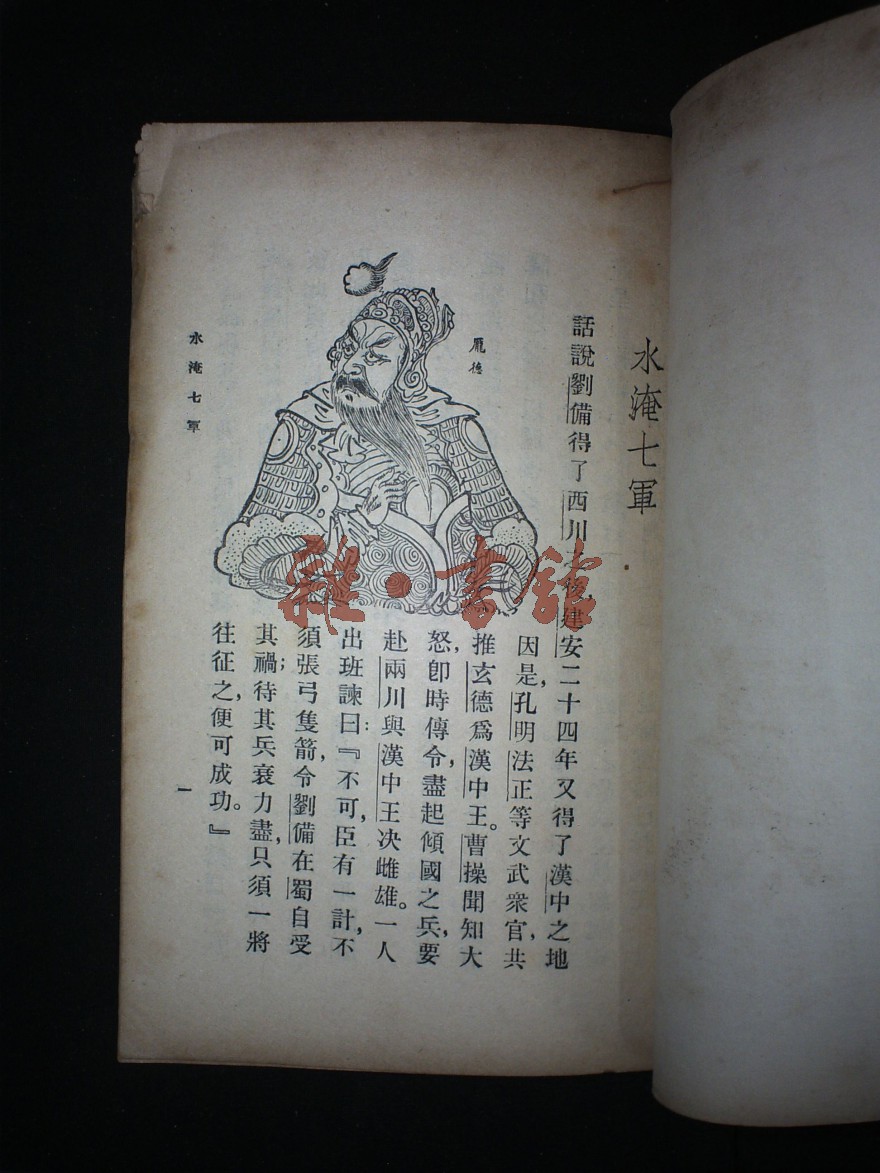 水淹七軍
話說劉備得了西川之後,建安二十四年又得了漢中之地
因是,孔明法正等文武衆官,共
推玄德爲漢中王。曹操聞知大
怒,卽時傳令,盡起傾國之兵,要
赴兩川與漢中王决雌雄。一人
出班諫曰:『不可,臣有一計,不
須張弓隻箭,令劉備在蜀自受
其禍;待其兵衰力盡,只須一將
往征之,便可成功。』
龐德
水淹七軍
一
雜·書館